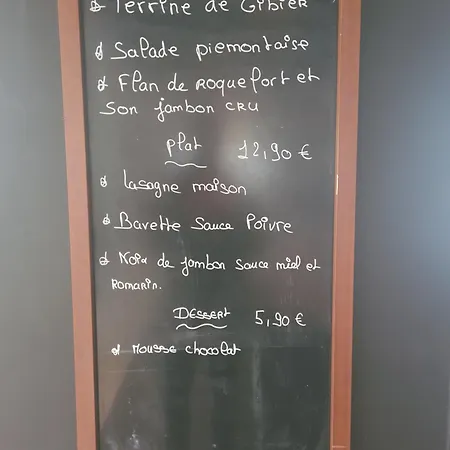 Terrine de Gibier
Salade piemontaise
Flan de roquefort et
son jambon cru
Plat 12,90 €
lasagne maison
Bavette Sauce Poivre
Noix de jambon Sauce miel et
Romarin.
Dessert 5,90 €
Mousse chocolat